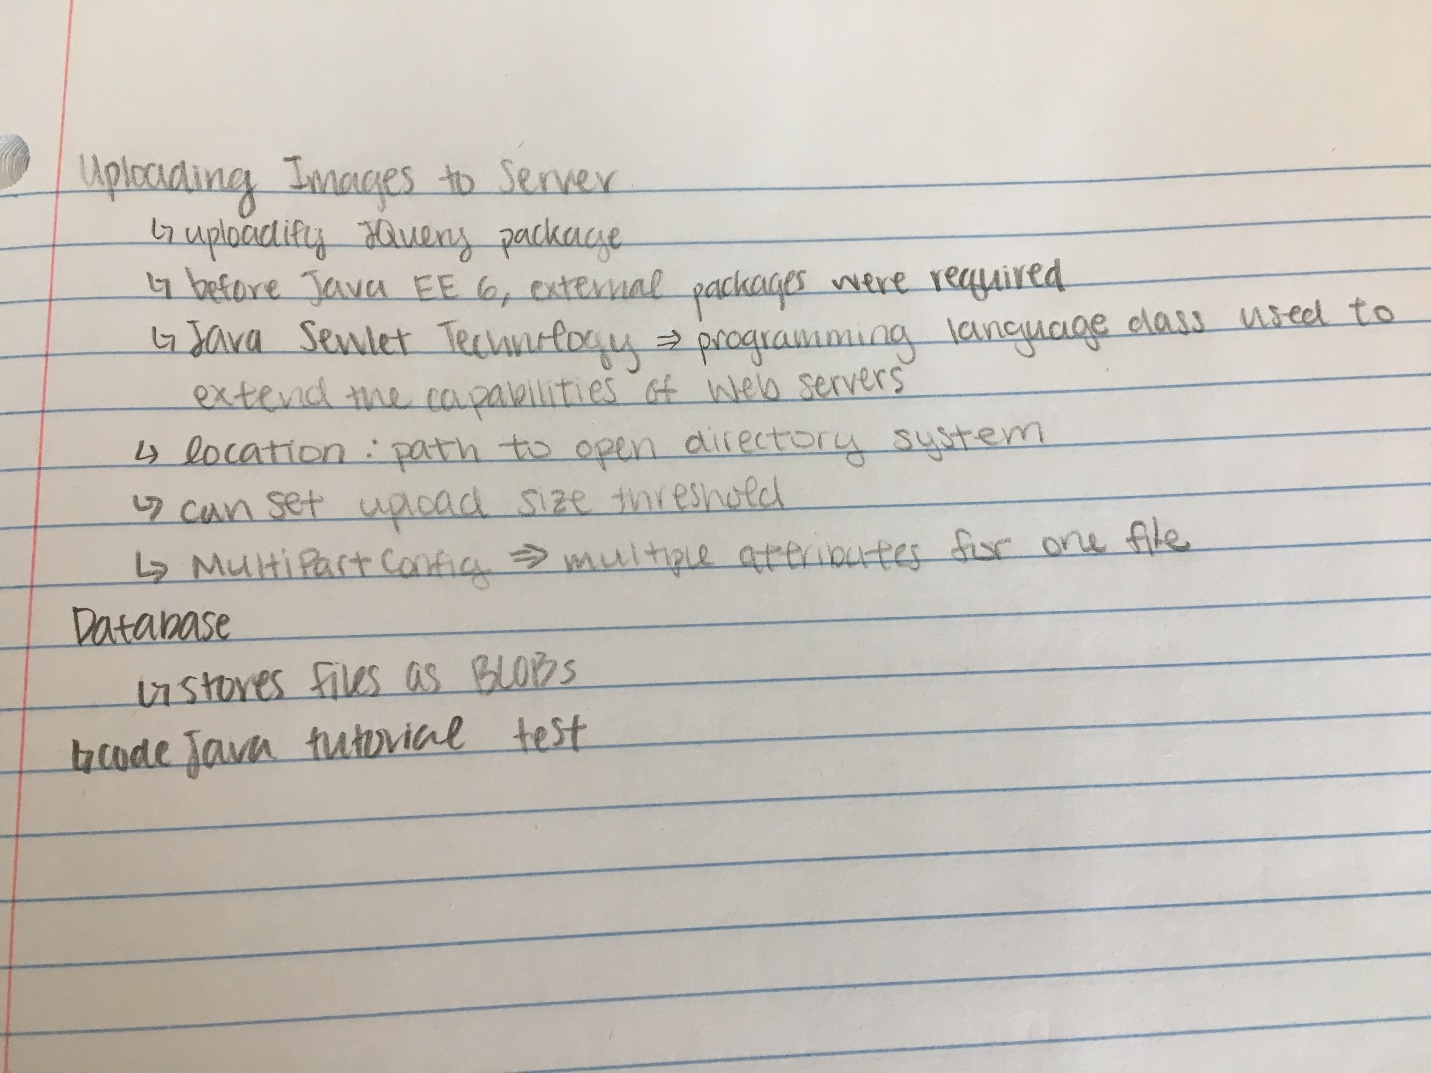 Uploading Images to Server
↳ uploadify JQuery package
↳ before Java EE 6, external packages were required
↳ Java Servlet Technology ⇒ programming language class used to
extend the capabilities of Web servers
↳ location : path to open directory system
↳ can set upload size threshold
↳ MultiPartConfig ⇒ multiple attributes for one file
Database
↳ stores files as BLOBs
↳ code Java tutorial test